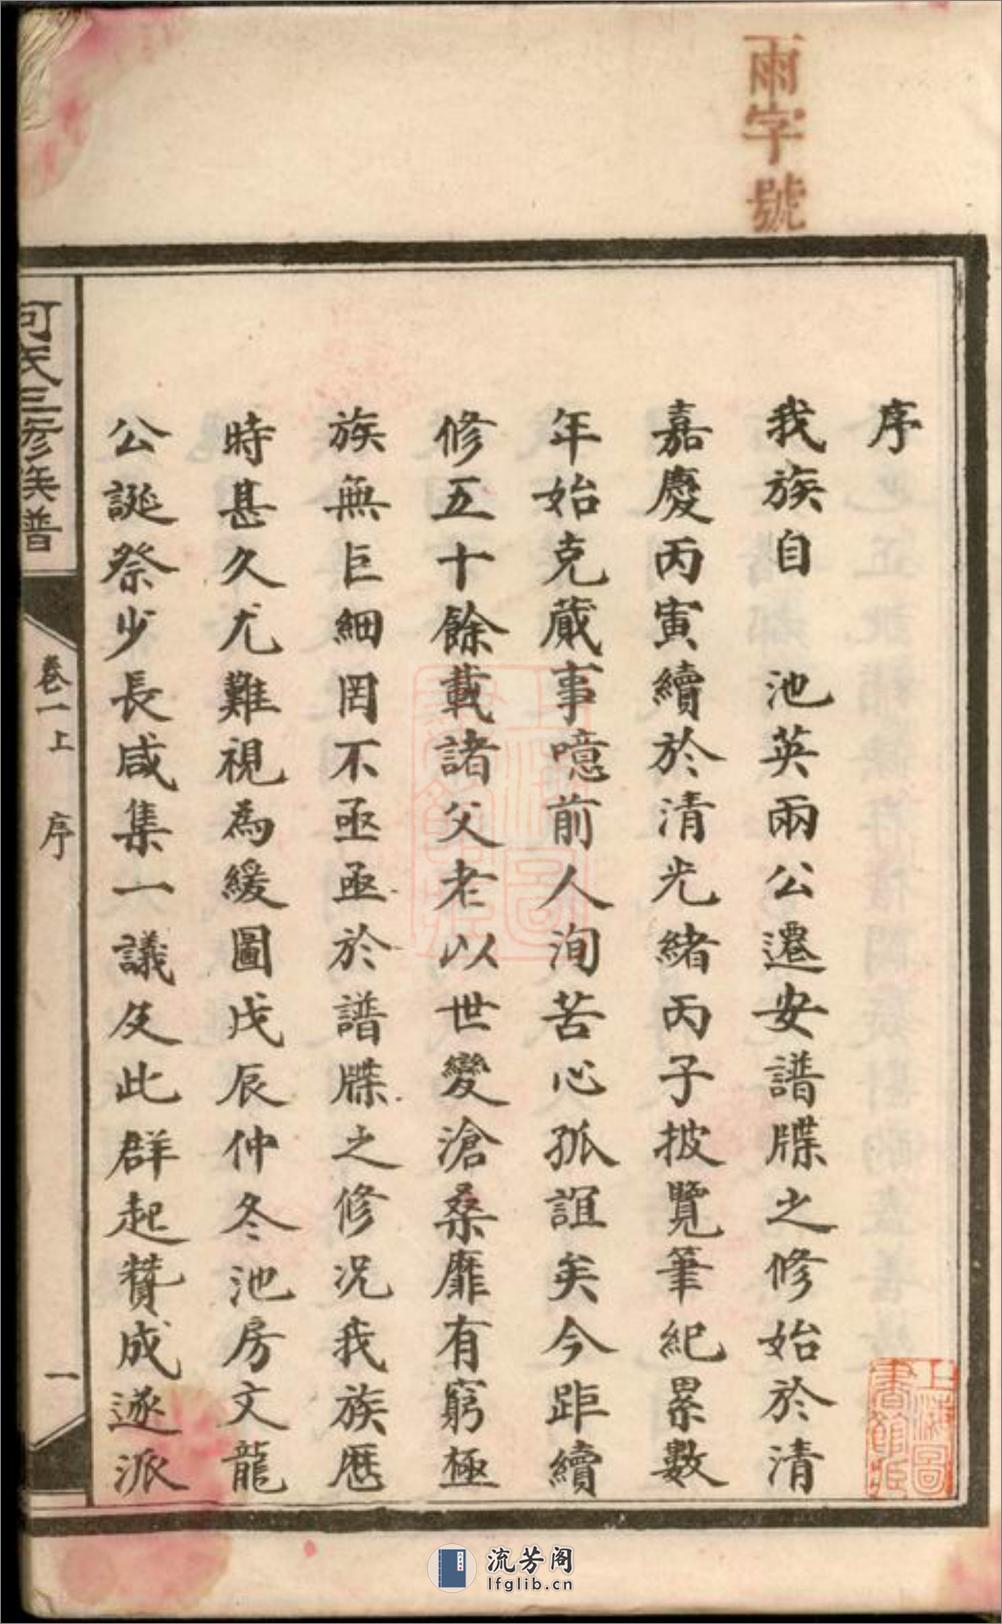 雨字號
序
我族自　池英兩公遷安譜牒之修始於清
嘉慶丙寅續於清光緒丙子披覽筆紀累數
年始克蕆事噫前人洵苦心孤誼矣今距續
修五十餘載諸父老以世變滄桑靡有窮極
族無巨細罔不亟亟於譜牒之修况我族歷
時甚久尤難視為緩圖戊辰仲冬池房文龍
公誕祭少長咸集一議及此群起贊成遂派
何氏三修族譜
卷一上　序
一
上海圖書館藏
流芳阁
lfglib.cn